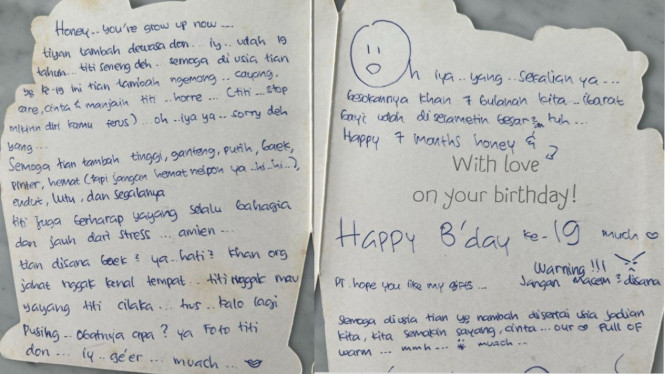 Honey.. you're grow up now ....
tiyan tambah dewasa don... iy.. udah 19
tahun... titi seneng deh.. semoga di usia tian
yg ke-19 ini tian tambah ngemong.. sayang,
care, cinta & manjain titi ..horre... (titi... stop
mikirin diri kamu terus)... oh ..iya ya.. sorry deh
bang...
Semoga tian tambah tinggi, ganteng, putih, baek,
pinter, hemat (tapi jangan hemat nelpon ya ..hi..hi..),
endut, lutu, dan segalanya
titi juga berharap yayang selalu bahagia
dan jauh dari stress ... amien...
tian disana baek² ya..hati² khan org
jahat nggak kenal tempat... titi nggak mau
yayang titi cilaka... tus.. kalo lagi
pusing.. obatnya apa? ya foto titi
don... iy.. ge'er... muach...
Oh iya..yang..sekalian ya...
besokannya khan 7 bulanan kita..ibarat
bayi udah di selametin besar²an tuh...
Happy 7 months honey
With love
on your birthday!
Happy B'day ke-19 muach
Warning !!!
Jangan macem² disana
Pr. hope you like my gifts...
Semoga di usia tian yg nambah disertai usia jadian
kita, kita semakin sayang, cinta... our full of
warm... mmh... muach..